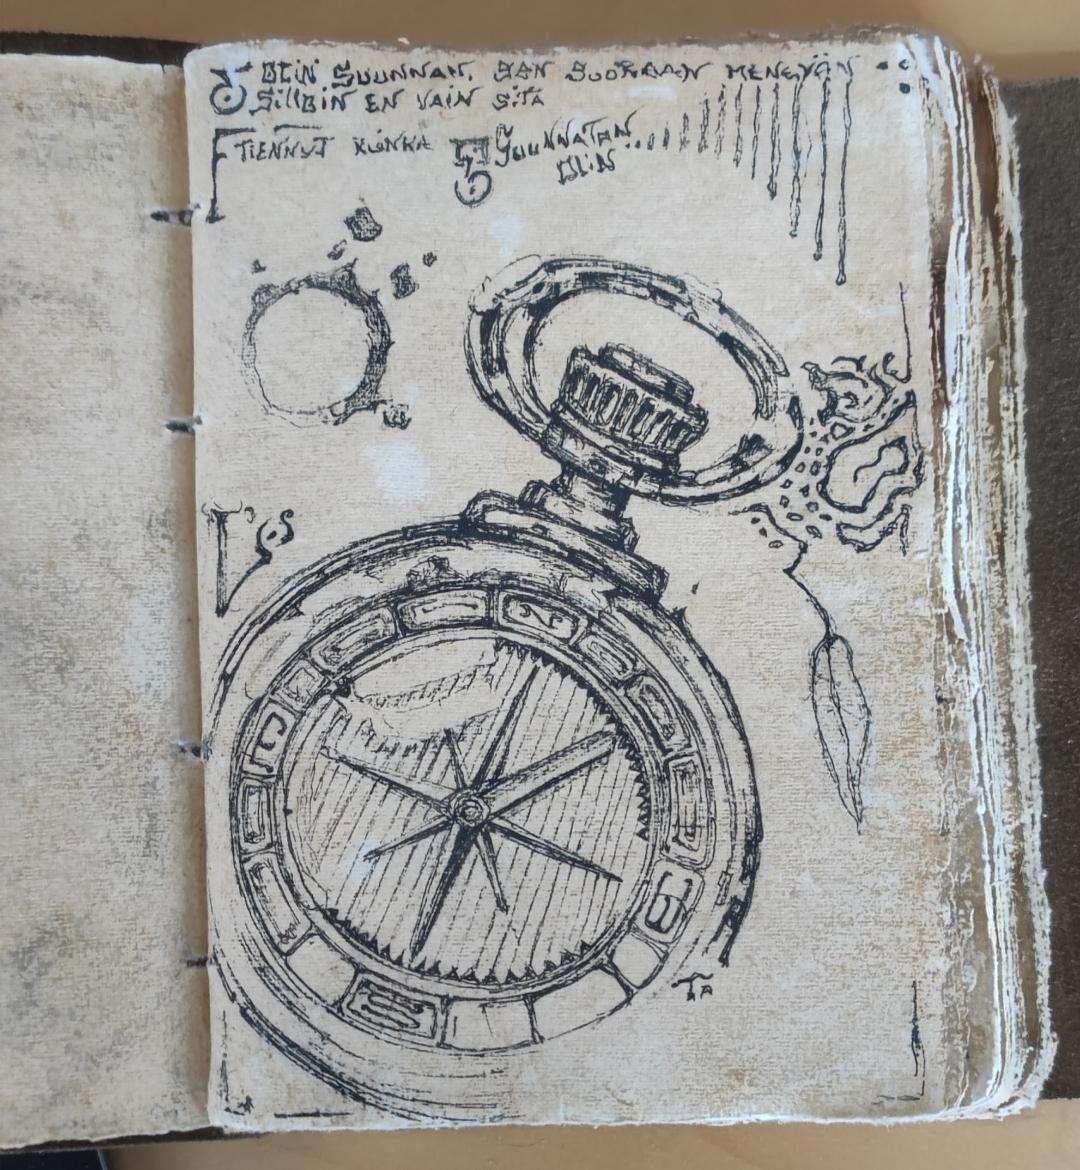 OLIN SUUNNAN, SEN SUORAAN MENEVÄN
SILLOIN EN VAIN SITÄ
TIENNYT KUINKA SUUNNATON
OLIN